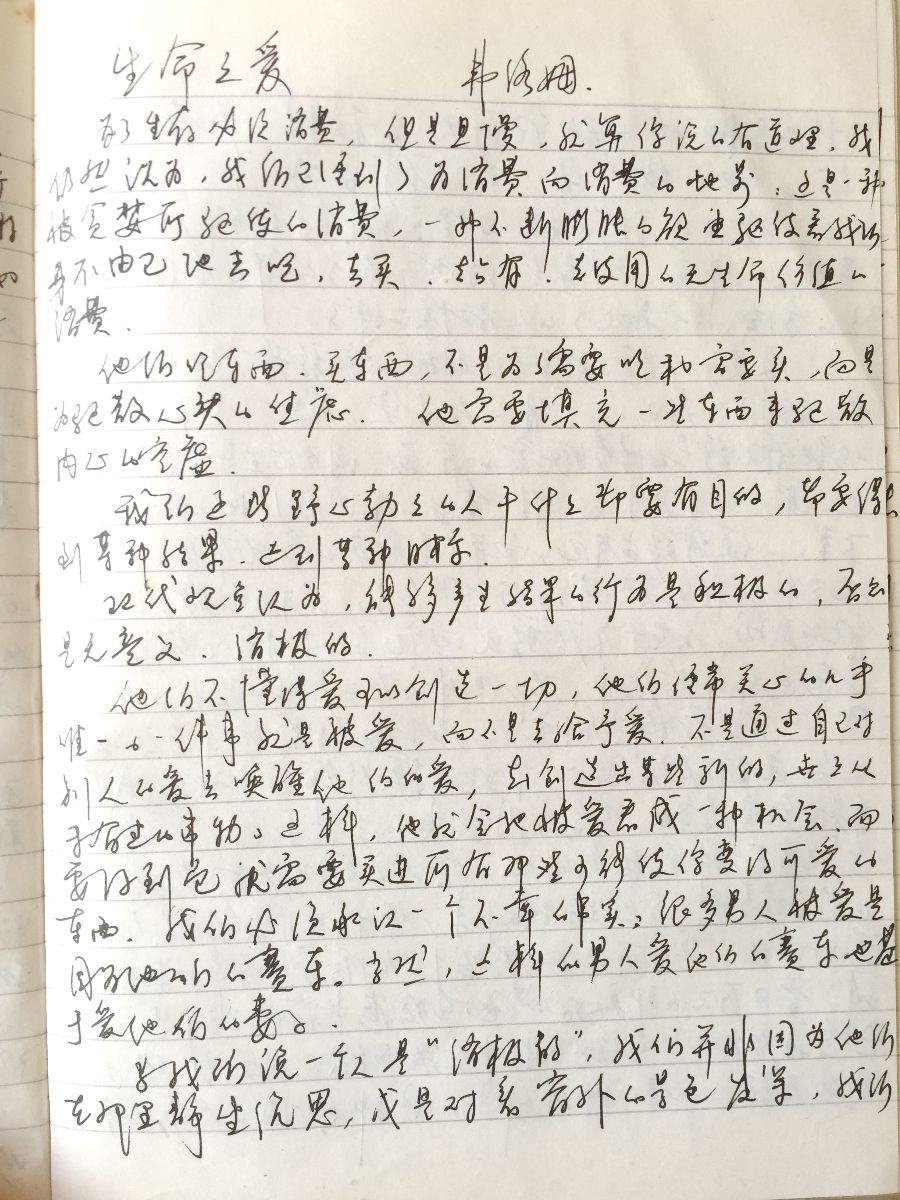 生命之爱 弗洛姆.
为了生存必须消费，但是且慢，就算你说的有道理，我
仍然认为，我们已经到了为消费而消费的地步：这是一种
被贪婪所驱使的消费，一种不断膨胀的欲望驱使着我们
身不由己地去吃，去买、去占有、去使用的无生命价值的
消费.
他们吃东西、买东西，不是为了需要吃和需要买，而是
为驱散心头的焦虑. 他需要填充一些东西来驱散
内心的空虚.
我们这些野心勃勃的人干什么都要有目的，都要得
到某种结果、达到某种时.
现代观念认为，能够产生结果的行为是积极的，否则
是无意义、消极的.
他们不懂得爱可以创造一切，他们经常关心的几乎
唯一的一件事就是被爱，而不是去给予爱. 不是通过自己对
别人的爱去唤醒他们的爱，去创造出某些新的，世上从
未有过的事物。这样，他就会把被爱看成一种机会、而
要得到它就需要买进所有那些才能使你变得可爱的
东西. 我们必须承认一个不幸的事实：很多男人被爱是
因为他们的赛车。当然，这样的男人爱他们的赛车也甚
于爱他们的妻子.
当我们说一个人是“消极的”，我们并非因为他们
在那里静坐沉思，或是对着窗外的景色发呆，我们